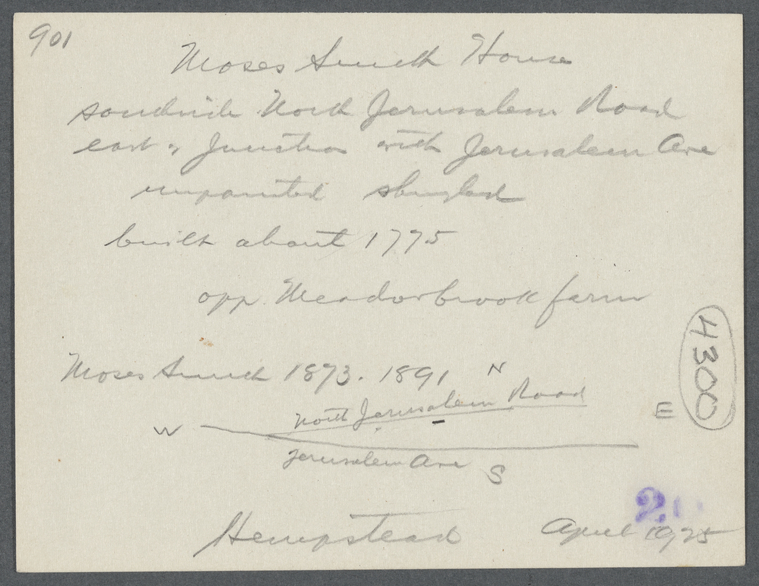 901
Moses Smith House
southside North Jerusalem Road
east of Junction with Jerusalem Ave
unpainted shingled
built about 1775
opp. Meadowbrook farm
4300
Moses Smith 1873. 1891 N
North Jerusalem Road
W E
Jerusalem Ave S
Hempstead April 1925